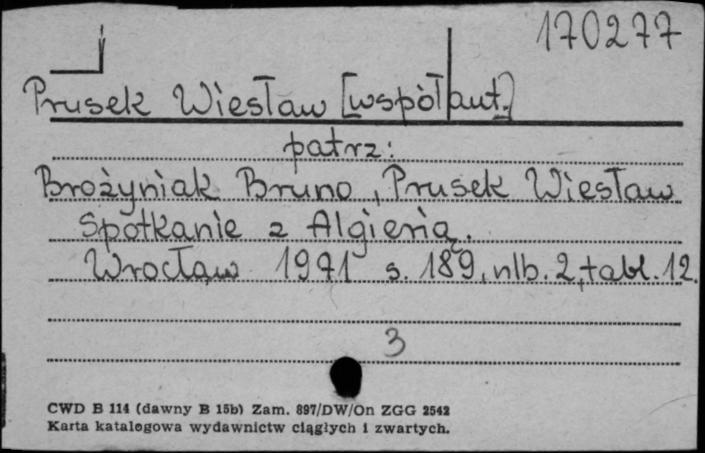 170277
Prusek Wiesław [współaut.]
patrz:
Brożyniak Bruno, Prusek Wiesław
Spotkanie z Algierią.
Wrocław 1971 s. 189, nlb. 2, tabl. 12.
3
CWD B 114 (dawny B 15b) Zam. 897/DW/On ZGG 2542
Karta katalogowa wydawnictw ciągłych i zwartych.